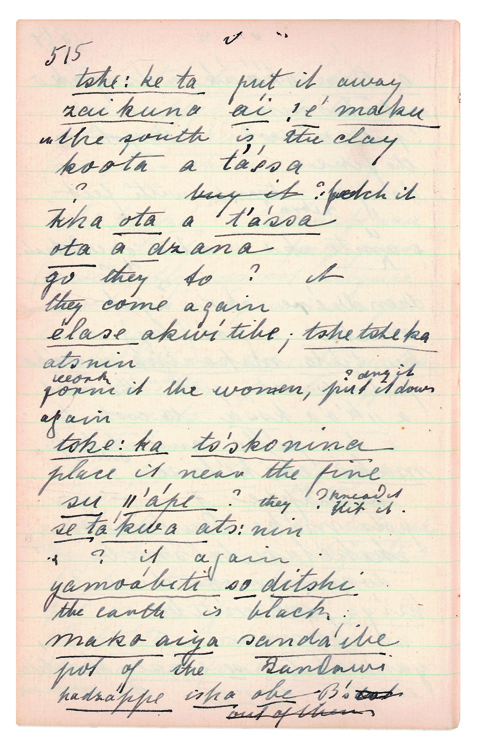 515
tshe: ke ta put it away
zai kuna ái ʔéʹ maku
in the south is the clay
koota a tássa
? buy it ? fetch it
kka ota a t'ássa
ota a dzana
go they to ? it
they come again
elase akwi tibe; tshetsheka
atsnin
work ? dry it
form it the women, put it down
again
tshe: ka ts'skonina
place it near the fire
su //'ápe ? they ? knead it
hit it.
se tá kwa ats: nin
? it again
yamoábeti so ditshi
the earth is black
mako aiya sandá'ibe
pot of the Sandawi
hadzáppe iska obe
out of them